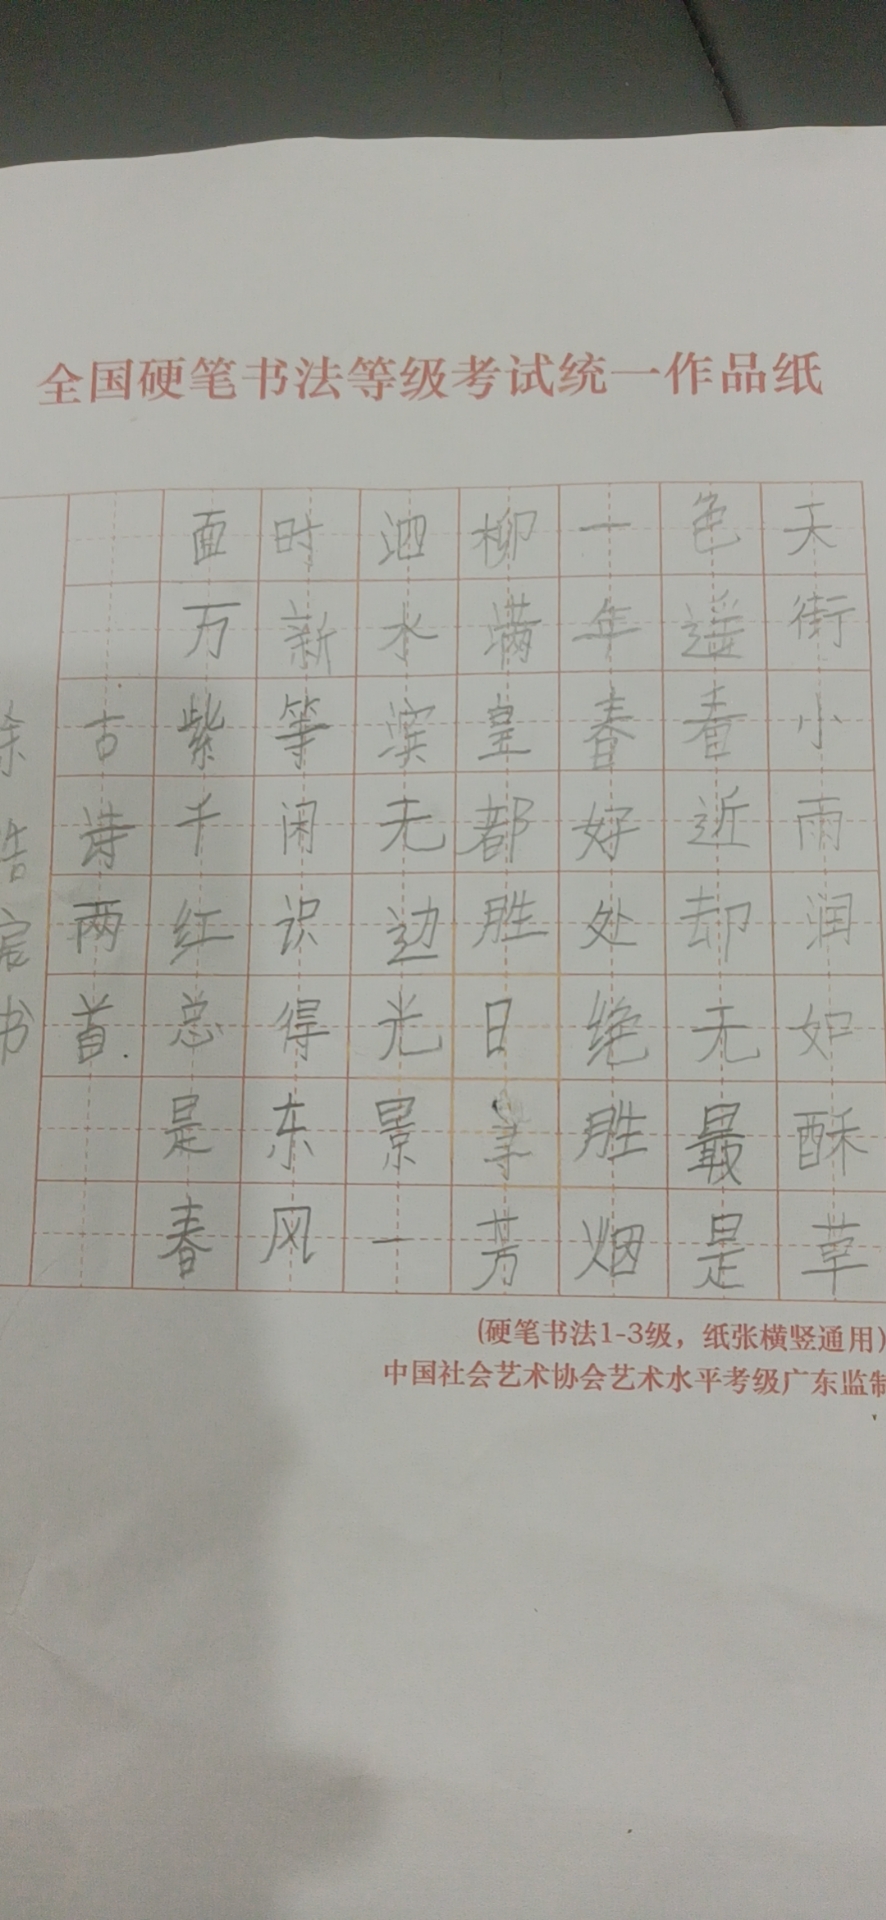 全国硬笔书法等级考试统一作品纸
天街小雨润如酥草
色遥看近却无最是
一年春好处绝胜烟
柳满皇都胜日寻芳
泗水滨无边光景一
时新等闲识得东风
面万紫千红总是春
古诗两首.
书
(硬笔书法1-3级，纸张横竖通用)
中国社会艺术协会艺术水平考级广东监制